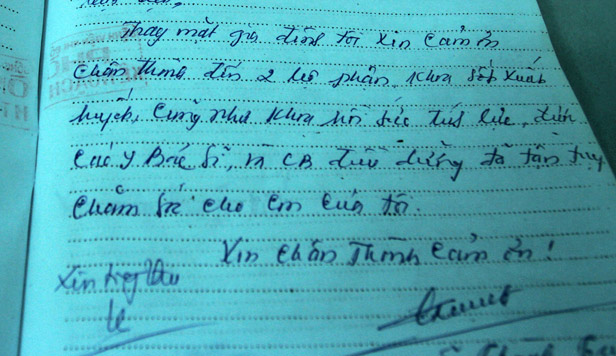 Thay mặt gia đình tôi xin cảm ơn
chân thành đến 2 bộ phận Khoa sốt xuất
huyết, cũng như khoa hồi sức tích cực, đến
các y Bác sĩ, và CB điều dưỡng đã tận tụy
chăm sóc cho em của tôi.
Xin chân thành cảm ơn!